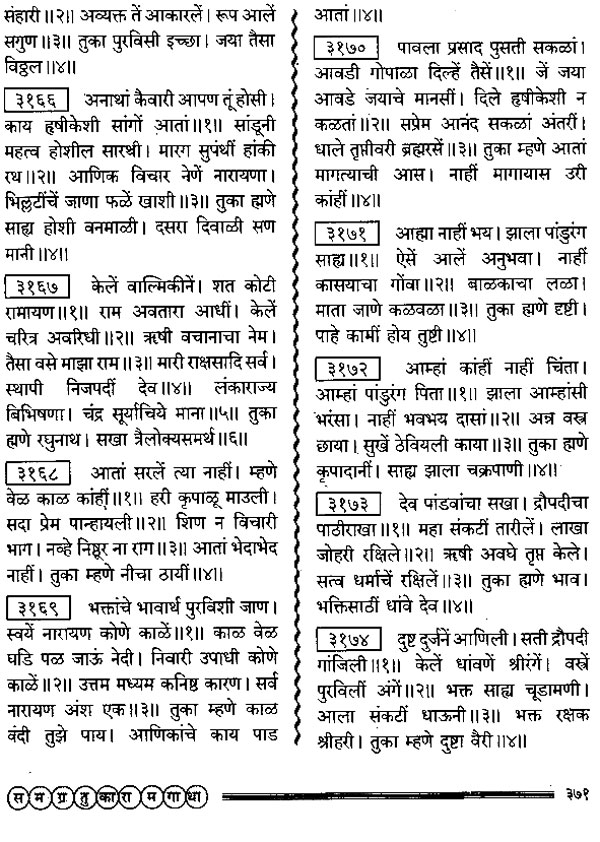 संहारी॥२॥ अव्यक्त तें आकारलें। रूप आलें
सगुण॥३॥ तुका पुरविसी इच्छा। जया तैसा
विठ्ठल॥४॥
३१६६ अनाथां कैवारी आपण तूं होसी।
काय हृषीकेशी सांगों आतां॥१॥ सांडूनी
महत्व होशील सारथी। मारग सुपंथीं हांकी
रथ॥२॥ आणिक विचार नेणें नारायणा।
भिल्लटींचें जाणा फळें खाशी॥३॥ तुका ह्मणे
साह्य होशी वनमाळी। दसरा दिवाळी सण
मानी॥४॥
३१६७ केलें वाल्मिकीनें। शत कोटी
रामायण॥१॥ राम अवतारा आधीं। केलें
चरित्र अवरिधी॥२॥ ऋषी वचानाचा नेम।
तैसा वसे माझा राम॥३॥ मारी राक्षसादि सर्व।
स्थापी निजपदीं देव॥४॥ लंकाराज्य
बिभिषणा। चंद्र सूर्याचिये माना॥५॥ तुका
ह्मणे रघुनाथ। सखा त्रैलोक्यसमर्थ॥६॥
३१६८ आतां सरलें त्या नाहीं। म्हणे
वेळ काळ कांहीं॥१॥ हरी कृपाळू माउली।
सदा प्रेम पान्हायली॥२॥ शिण न विचारी
भाग। नव्हे निष्ठूर ना राग॥३॥ आतां भेदाभेद
नाहीं। तुका म्हणे नीचा ठायीं॥४॥
३१६९ भक्तांचे भावार्थ पुरविशी जाण।
स्वयें नारायण कोणे काळें॥१॥ काळ वेळ
घडि पळ जाऊं नेदी। निवारी उपाधी कोणे
काळें॥२॥ उत्तम मध्यम कनिष्ठ कारण। सर्व
नारायण अंश एक॥३॥ तुका म्हणे काळ
वंदी तुझे पाय। आणिकांचे काय पाड
आतां॥४॥
३१७० पावला प्रसाद पुसती सकळां।
आवडी गोपाळा दिल्हें तैसें॥१॥ जें जया
आवडे जयाचे मानसीं। दिले हृषीकेशी न
कळतां॥२॥ सप्रेम आनंद सकळां अंतरीं।
धाले तृप्तीवरी ब्रह्मरसें॥३॥ तुका म्हणे आतां
मागत्याची आस। नाहीं मागायास उरी
कांहीं॥४॥
३१७१ आह्मा नाहीं भय। झाला पांडुरंग
साह्य॥१॥ ऐसें आलें अनुभवा। नाहीं
कासयाचा गोंवा॥२॥ बाळकाचा लळा।
माता जाणे कळवळा॥३॥ तुका ह्मणे दृष्टी।
पाहे कामीं होय तुष्टी॥४॥
३१७२ आम्हां कांहीं नाहीं चिंता।
आम्हां पांडुरंग पिता॥१॥ झाला आम्हांसी
भरंसा। नाहीं भवभय दासां॥२॥ अन्न वस्त्र
छाया। सुखें ठेवियली काया॥३॥ तुका ह्मणे
कृपादानीं। साह्य झाला चक्रपाणी॥४॥
३१७३ देव पांडवांचा सखा। द्रौपदीचा
पाठीराखा॥१॥ महा संकटीं तारीलें। लाखा
जोहरी रक्षिले॥२॥ ऋषी अवघे तृप्त केले।
सत्व धर्माचें रक्षिलें॥३॥ तुका ह्मणे भाव।
भक्तिसाठीं धांवे देव॥४॥
३१७४ दुष्ट दुर्जनें आणिली। सती द्रौपदी
गांजिली॥१॥ केलें धांवणें श्रीरंगें। वस्त्रें
पुरविलीं अंगें॥२॥ भक्त साह्य चूडामणी।
आला संकटीं धाऊनी॥३॥ भक्त रक्षक
श्रीहरी। तुका म्हणे दुष्टा वैरी॥४॥
समग्र तुकाराम गाथा ३७१